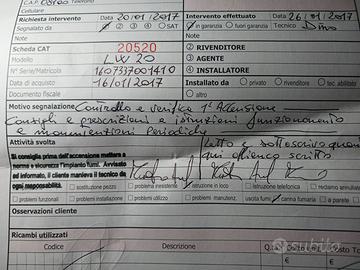 C.A.P. Telefono
Richiesta intervento Data 20/01/2017 Intervento effettuato Data 26/01/2017
Segnalato da 2 3 4 SAT in garanzia fuori garanzia Tecnico Dino
Scheda CAT 20520 2 RIVENDITORE
Modello LW 20 3 AGENTE
N° Serie/Matricola 1607337001410 4 INSTALLATORE
Data di acquisto 16/01/2017 Installato da privato rivenditore tec. abilitato
Documento fiscale altro
Motivo segnalazione Controllo e verifica 1° Accensione
Consigli e prescrizioni e istruzioni funzionamento
e manutenzioni Periodiche
Attività svolta Letto e sottoscrivo quan
Si consiglia prima dell'accensione mettere a
norma e sicurezza l'impianto fumi. Avvisato qui
ed informato, il cliente manleva il tecnico da
ogni responsabilità.
sostituzione pezzo problema inesistente istruzione in loco istruzione telefonica reclamo annullato
problemi funzionali problemi installazione problemi rumore manutenzione uscita fumi canna fumaria p
Osservazioni cliente
Ricambi utilizzati
Codice Descrizione
subito